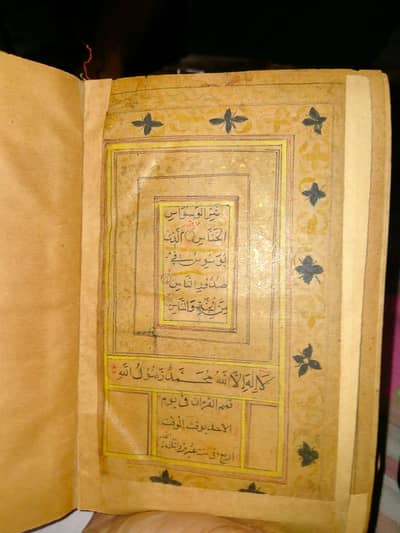 شر الوسواس
الخناس الذی
یوسوس فی
صدور الناس
من الجنة والناس
لا اله الا الله محمد رسول الله
تمه القران فی یوم
الاحد بوقت الوقت